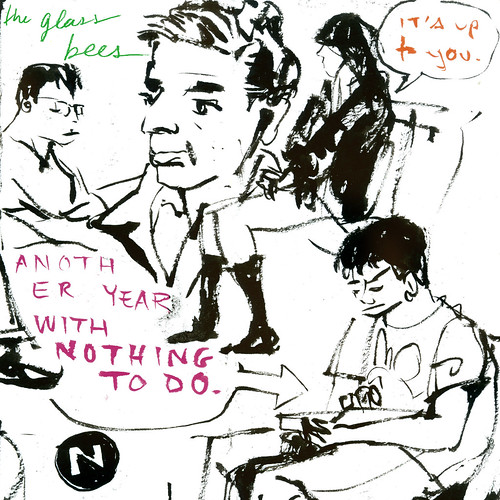 the glass
bees
IT'S UP
to you.
ANOTH
ER YEAR
WITH
NOTHING
TO DO.
N